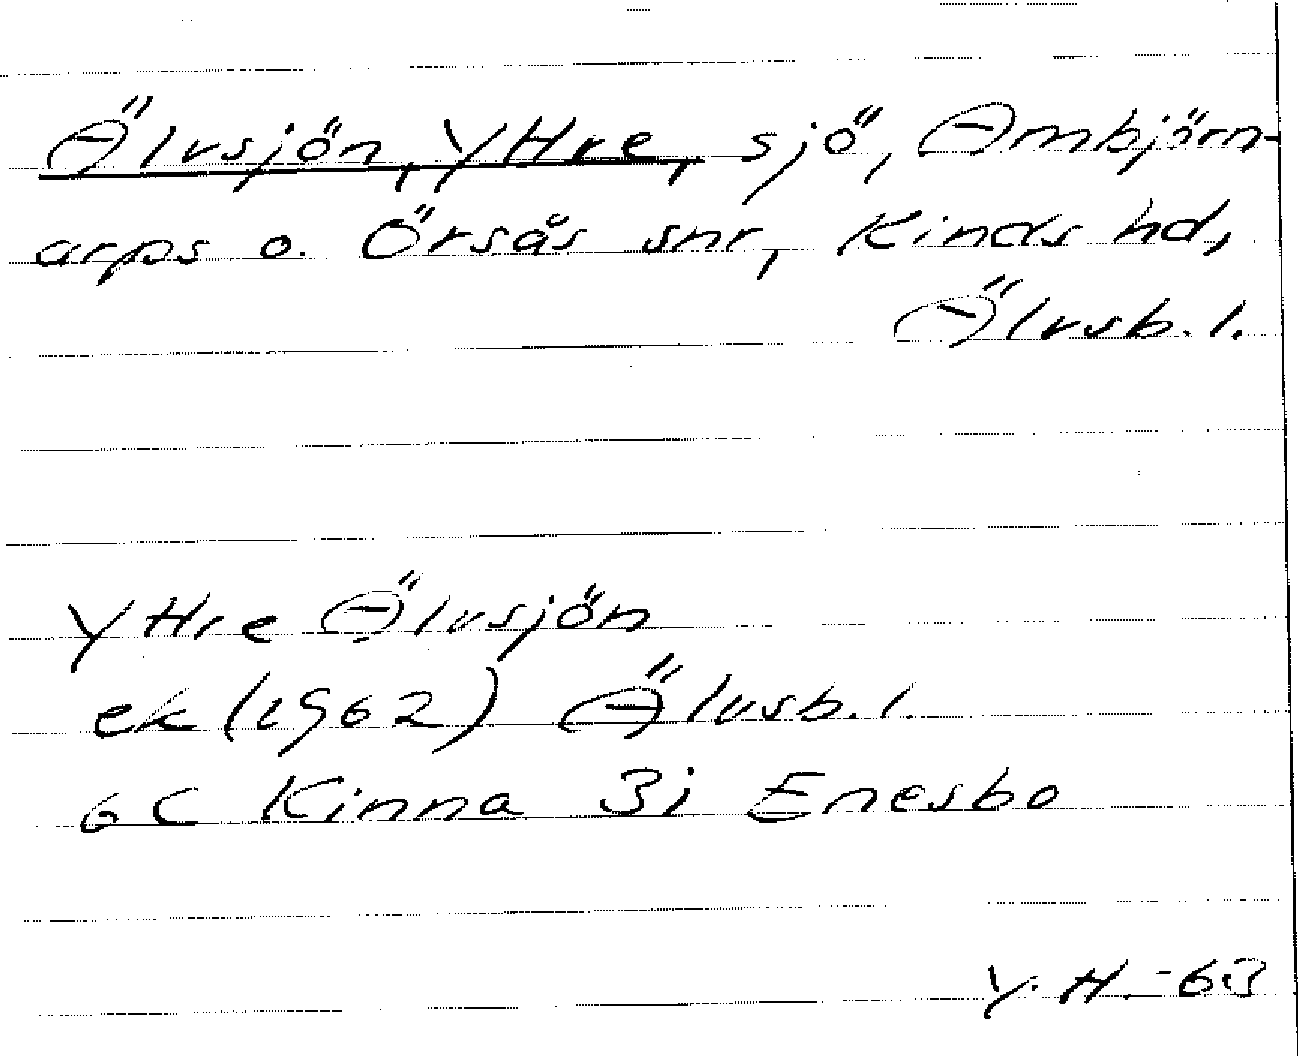 Älvsjön, Yttre, sjö, Ambjörn-
arps o. Örsås snr, Kinds hd,
Älvsb. l.
Yttre Älvsjön
ek (1962) Älvsb. l.
6C Kinna 3i Enesbo
Y. H. -63